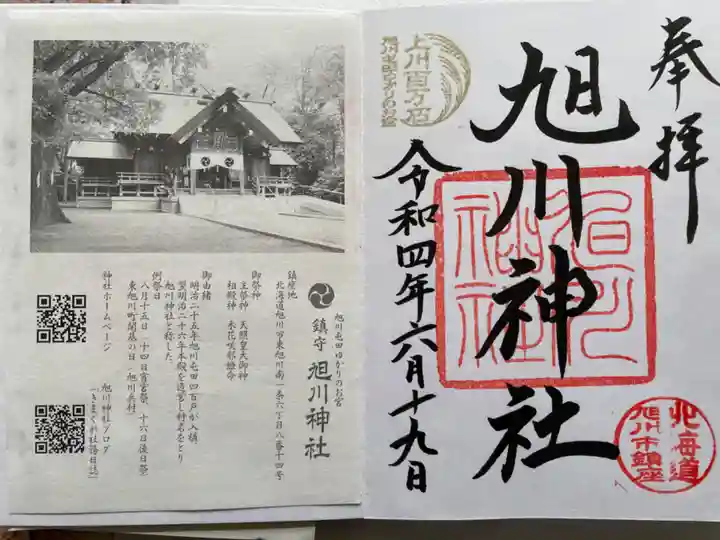 奉拝
旭川神社
令和四年六月十九日
上川百万石
旭川屯田ゆかりのお宮
旭川神社
北海道
旭川市鎮座
旭川屯田ゆかりのお宮
鎮守 旭川神社
鎮座地
北海道旭川市東旭川南一条六丁目八番十四号
御祭神
主祭神 天照皇大御神
相殿神 木花咲耶姫命
御由緒
明治二十五年旭川屯田四百戸が入植
翌明治二十六年本殿を造営し村名をとり
旭川神社と称した.
例祭日
八月十五日(十四日宵宮祭、十六日後日祭)
東旭川町開基の日(旭川兵村)
神社ホームページ
旭川神社ブログ
「きまぐれ社務日誌」